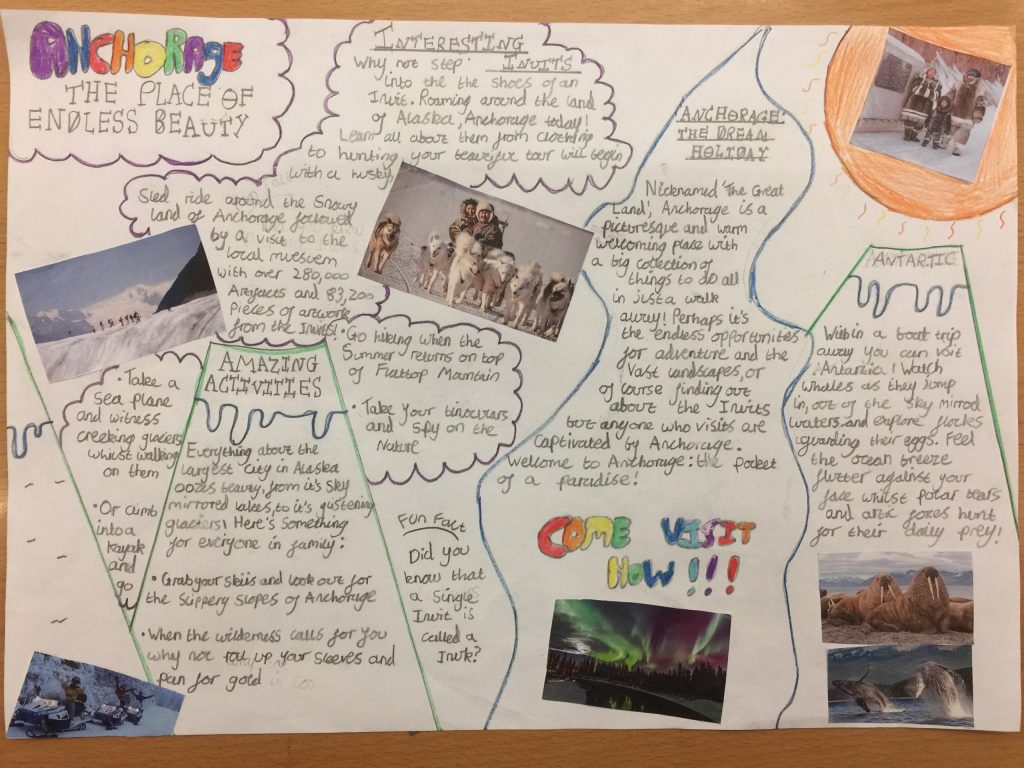 ANCHORAGE
THE PLACE OF
ENDLESS BEAUTY
INTERESTING
INUITS
Why not step
into the the shoes of an
Inuit. Roaming around the land
of Alaska, Anchorage today!
Learn all about them from clothing
to hunting your beautiful tour will begin
with a husky
Sled ride around the Snowy
land of Anchorage followed
by a visit to the
local museum
with over 280,000
Artefacts and 83,200
Pieces of artwork
from the Inuits!
• Go hiking when the
Summer returns on top
of Flattop Mountain
• Take your binoculars
and spy on the
Nature
• Take a
Sea plane
and witness
creeking glaciers
whilst walking
on them
• Or climb
into a
kayak
and
go
AMAZING
ACTIVITIES
Everything about the
largest city in Alaska
oozes beauty, from it's sky
mirrored lakes, to it's glistening
glaciers! Here's something
for everyone in family:
• Grab your skiis and look out for
the slippery slopes of Anchorage
• When the wilderness calls for you
why not roll up your sleeves and
pan for gold
FUN FACT
Did you
know that
a single
Inuit is
called a
Inuk?
ANCHORAGE:
THE DREAM
HOLIDAY
Nicknamed 'The Great
Land', Anchorage is a
picturesque and warm
welcoming place with
a big collection of
things to do all
in just a walk
away! Perhaps it's
the endless opportunities
for adventure and the
vast landscapes, or
of course finding out
about the Inuits
but anyone who visits are
captivated by Anchorage.
Welcome to Anchorage: the pocket
of a paradise!
COME VISIT
NOW!!!
ANTARTIC
Within a boat trip
away you can visit
Antartica! Watch
whales as they jump
in, out of the sky mirrod
waters and explore flocks
guarding their eggs. Feel
the ocean breeze
flutter against your
face whilst polar bears
and artic foxes hunt
for their daily prey!